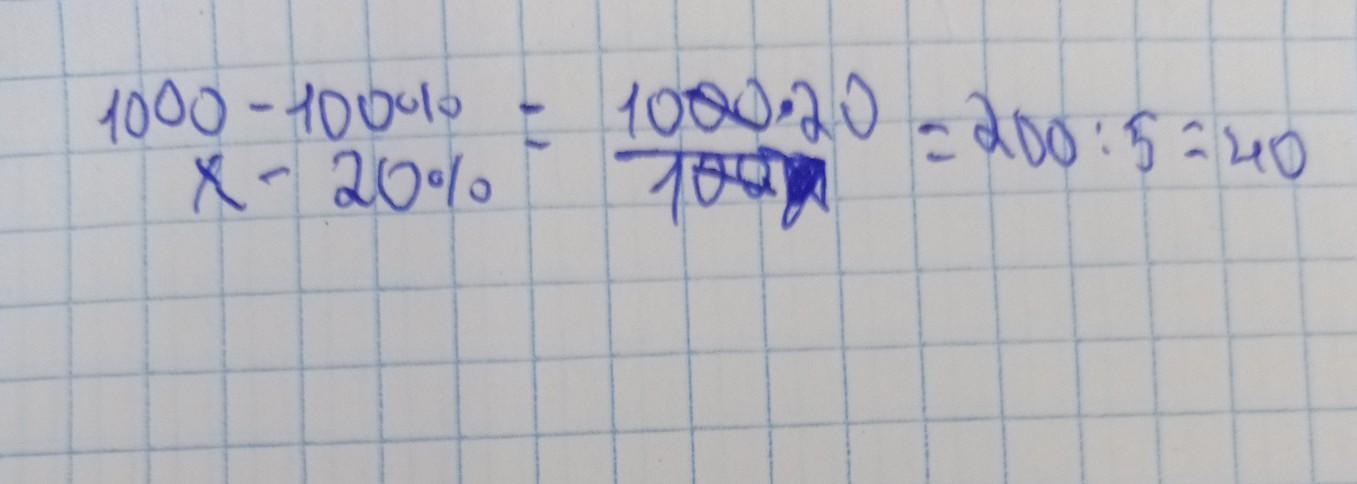 1000 - 100% = 1000·20 = 200 : 5 = 40
x - 20% 100